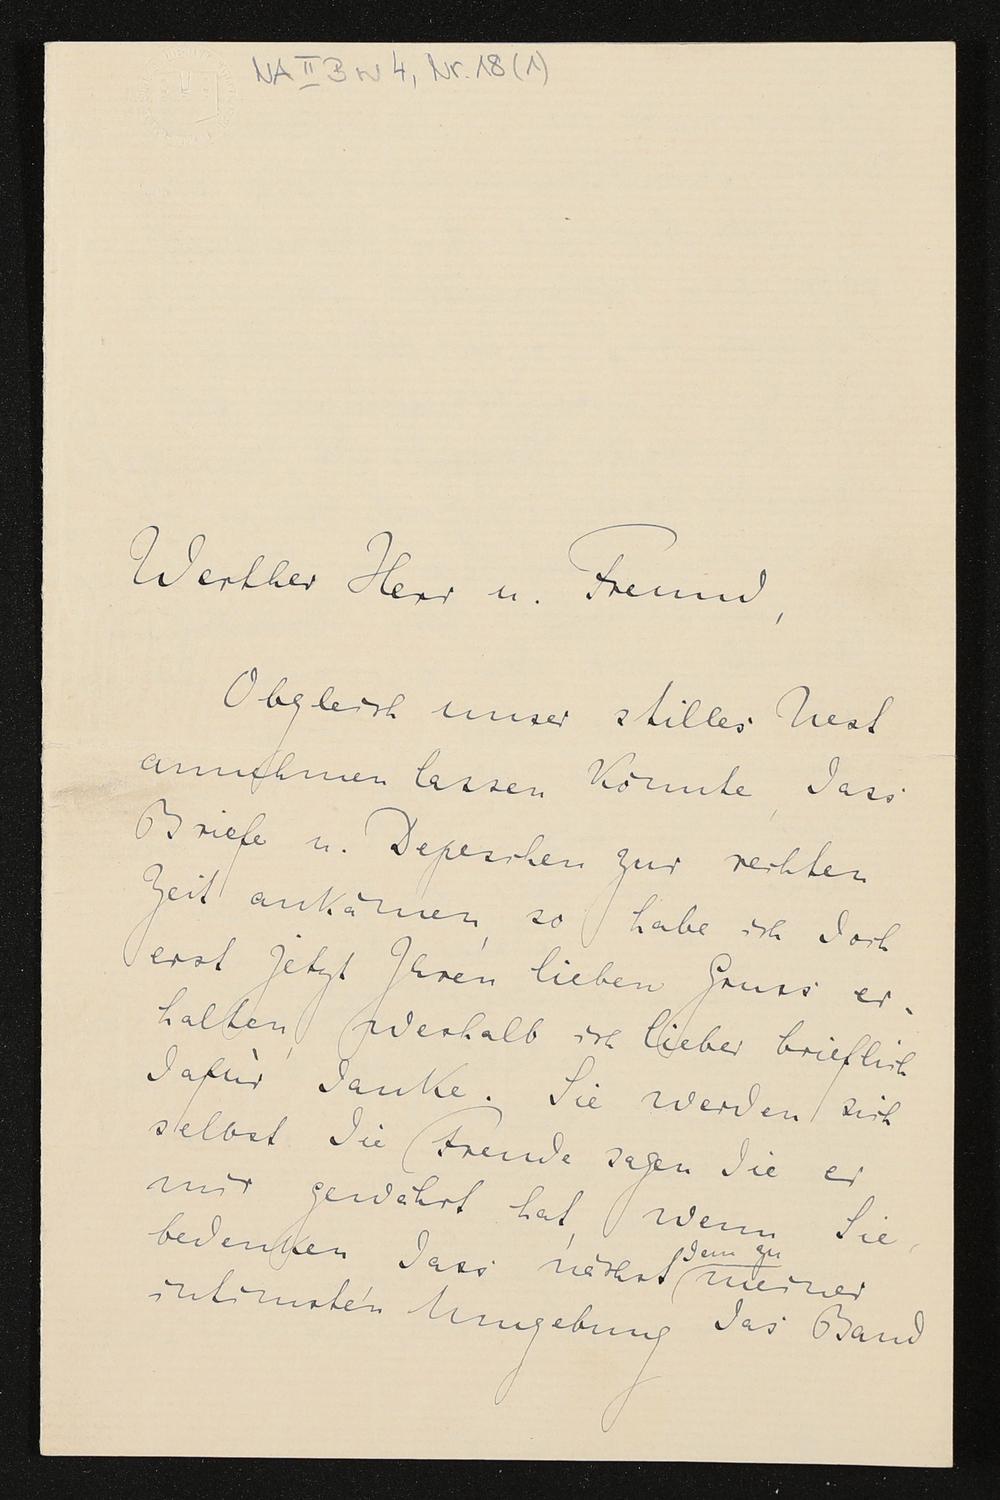 NA II B w 4, Nr. 18 (1)
Werther Herr u. Freund,
Obgleich unser stilles Nest
annehmen lassen könnte, dass
Briefe u. Depeschen zur rechten
Zeit ankämen, so habe ich doch
erst jetzt Ihren lieben Gruss er-
halten, weshalb ich lieber brieflich
dafür danke. Sie werden sich
selbst die Freude sagen die er
mir gewährt hat, wenn Sie,
bedenken dass nächst dem zu meiner
intimsten Umgebung das Band